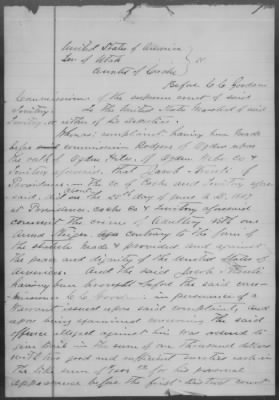 United States of America
Ter of Utah
County of Cache
Before C C Goodwin
Commissioner of the supreme court of said
Territory. To the United States Marshal of said
Territory or either of his deputies.
Whereas complaint having been made
before commissioner Rodgers of Ogden upon
the oath of Ogden Hiles, of Ogden Weber co &
Territory aforesaid, that Jacob
Providence in the co of Cache and Territory afore
said, did on the 20th day of June A.D. 188
at Providence, cache co & territory aforesaid
commit the crime of Adultery with one
Anna contrary to the form of
the statute made & provided and against
the peace and dignity of the United States of
America. And the said Jacob
having been brought before the said com-
missioner C C Goodwin in pursuance of a
Warrant issued upon said complaint, and
upon being examined concerning the said
offence alleged against him was ordered to
give bail in the sum of one Thousand dollars
with two good and sufficient sureties each in
the like sum of for his personal
appearance before the first district court